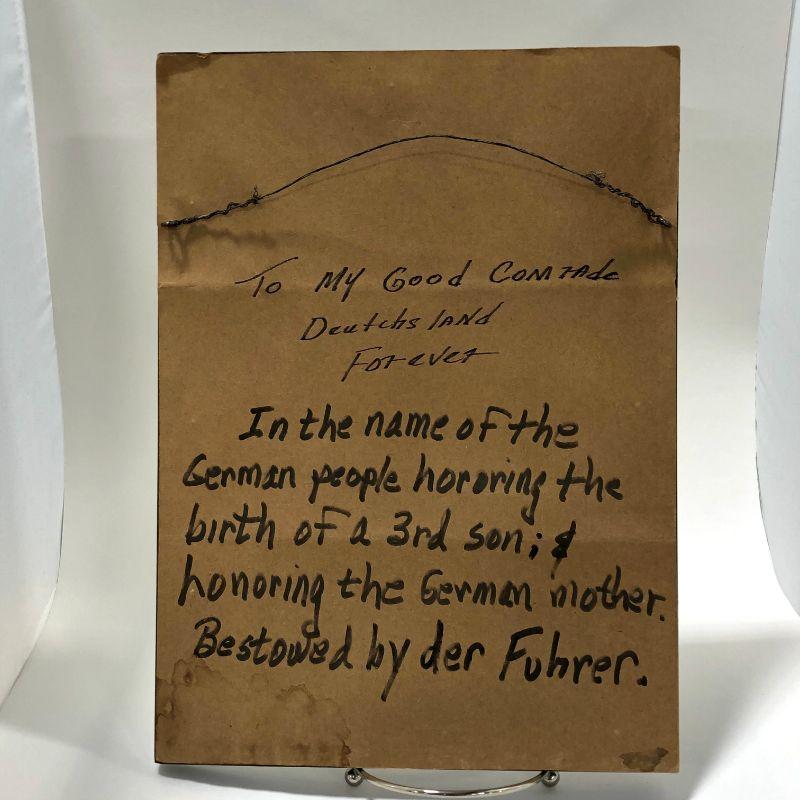 To My Good Comrade
Deutchsland
Forever
In the name of the
German people honoring the
birth of a 3rd son; &
honoring the German mother.
Bestowed by der Fuhrer.